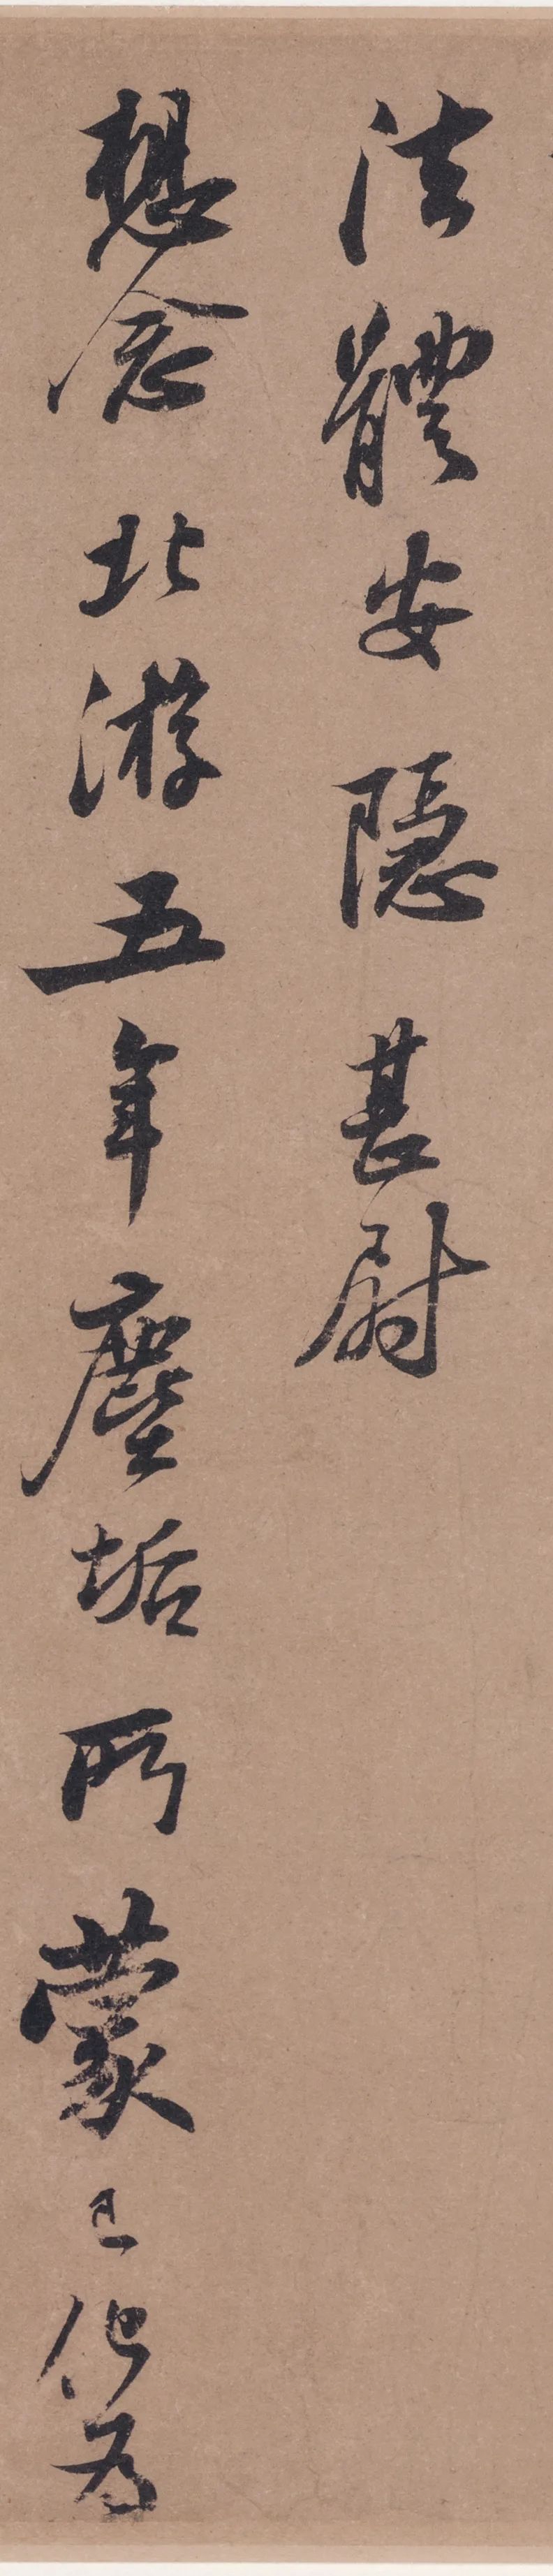 法體安隱甚尉
想念北游五年塵垢所蒙已化為